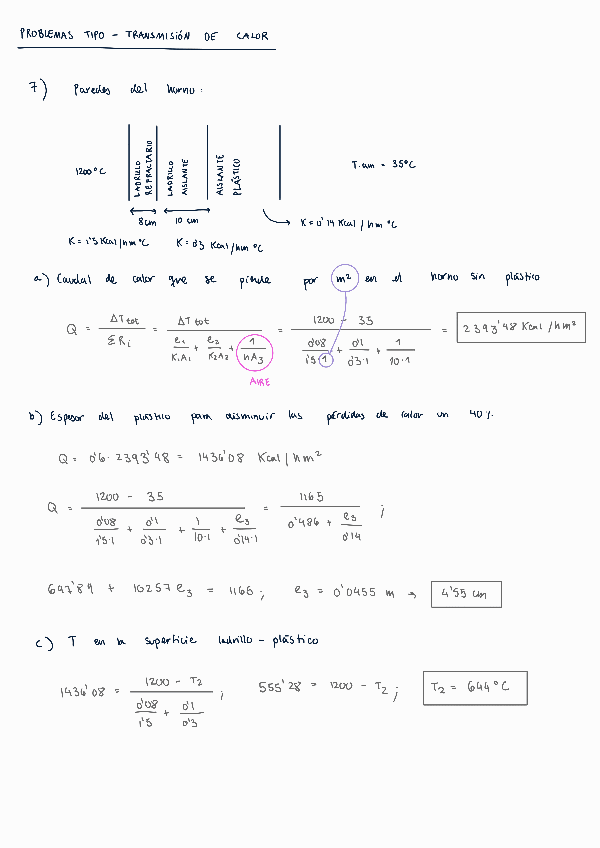 PROBLEMAS TIPO - TRANSMISIÓN DE CALOR
7) Paredes del horno:
1200°C
LADRILLO REFRACTARIO
LADRILLO AISLANTE
AISLANTE PLÁSTICO
T.am = 35°C
8cm
10 cm
K = 0'14 Kcal / hm °C
K = 1'5 Kcal/hm °C
K = 0'3 Kcal/hm °C
a) Caudal de calor que se pierde por m² en el horno sin plástico
Q = ΔTtot / ΣRi = ΔTtot / (e1/K1A1 + e2/K2A2 + 1/hA3) = (1200 - 35) / (0'08/1'5·1 + 0'1/0'3·1 + 1/10·1) = 2393'48 Kcal/hm²
AIRE
b) Espesor del plástico para disminuir las pérdidas de calor un 40%.
Q = 0'6 · 2393'48 = 1436'08 Kcal/hm²
Q = (1200 - 35) / (0'08/1'5·1 + 0'1/0'3·1 + 1/10·1 + e3/0'14·1) = 1165 / (0'486 + e3/0'14) ;
697'84 + 10257 e3 = 1165 ; e3 = 0'0455 m → 4'55 cm
c) T en la superficie ladrillo - plástico
1436'08 = (1200 - T2) / (0'08/1'5 + 0'1/0'3) ; 555'28 = 1200 - T2 ; T2 = 644°C